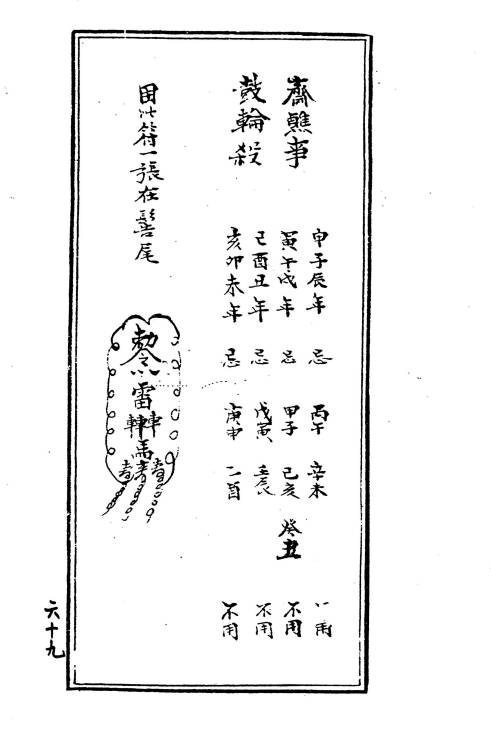 齋醮事
鼓輪殺
申子辰年 忌 丙午 辛未 不用
寅午戌年 忌 甲子 己亥 癸丑 不用
己酉丑年 忌 戊寅 壬辰 不用
亥卯未年 忌 庚申 乙酉 不用
因此符一張在髻尾
勅令
雷
六十九